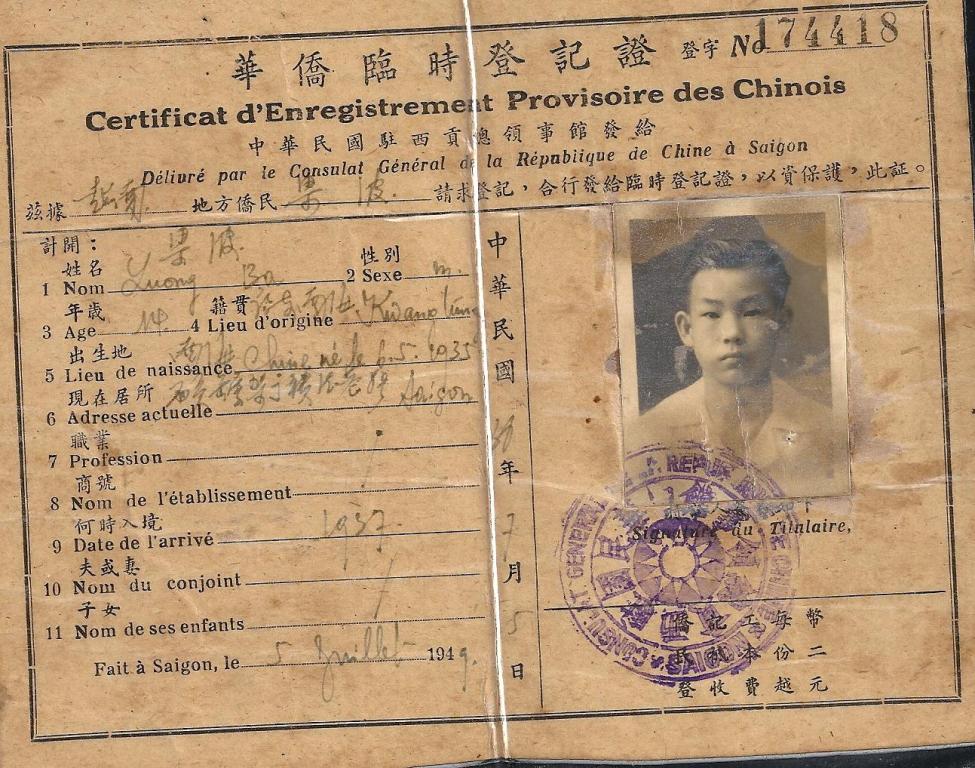 華僑臨時登記證 登字 No 174418
Certificat d'Enregistrement Provisoire des Chinois
中華民國駐西貢總領事館發給
Délivré par le Consulat Général de la Répubiique de Chine à Saigon
茲據 越南 地方僑民 梁波 請求登記，合行發給臨時登記證，以資保護，此証。
計開：
姓名 梁波
1 Nom Luong Ba
性別
2 Sexe m.
年歳
3 Age 14
籍貫
4 Lieu d'origine Kwang tung
出生地
5 Lieu de naissance Chine né le 6.5.1935
現在居所
6 Adresse actuelle Saigon
職業
7 Profession
商號
8 Nom de l'établissement
何時入境
9 Date de l'arrivé 1937
夫或妻
10 Nom du conjoint
子女
11 Nom de ses enfants
Fait à Saigon, le 5 Juillet 1949.
中華民國 38 年 7 月 5 日
Signature du Titulaire,
每份二元
登收費越
SAIGON